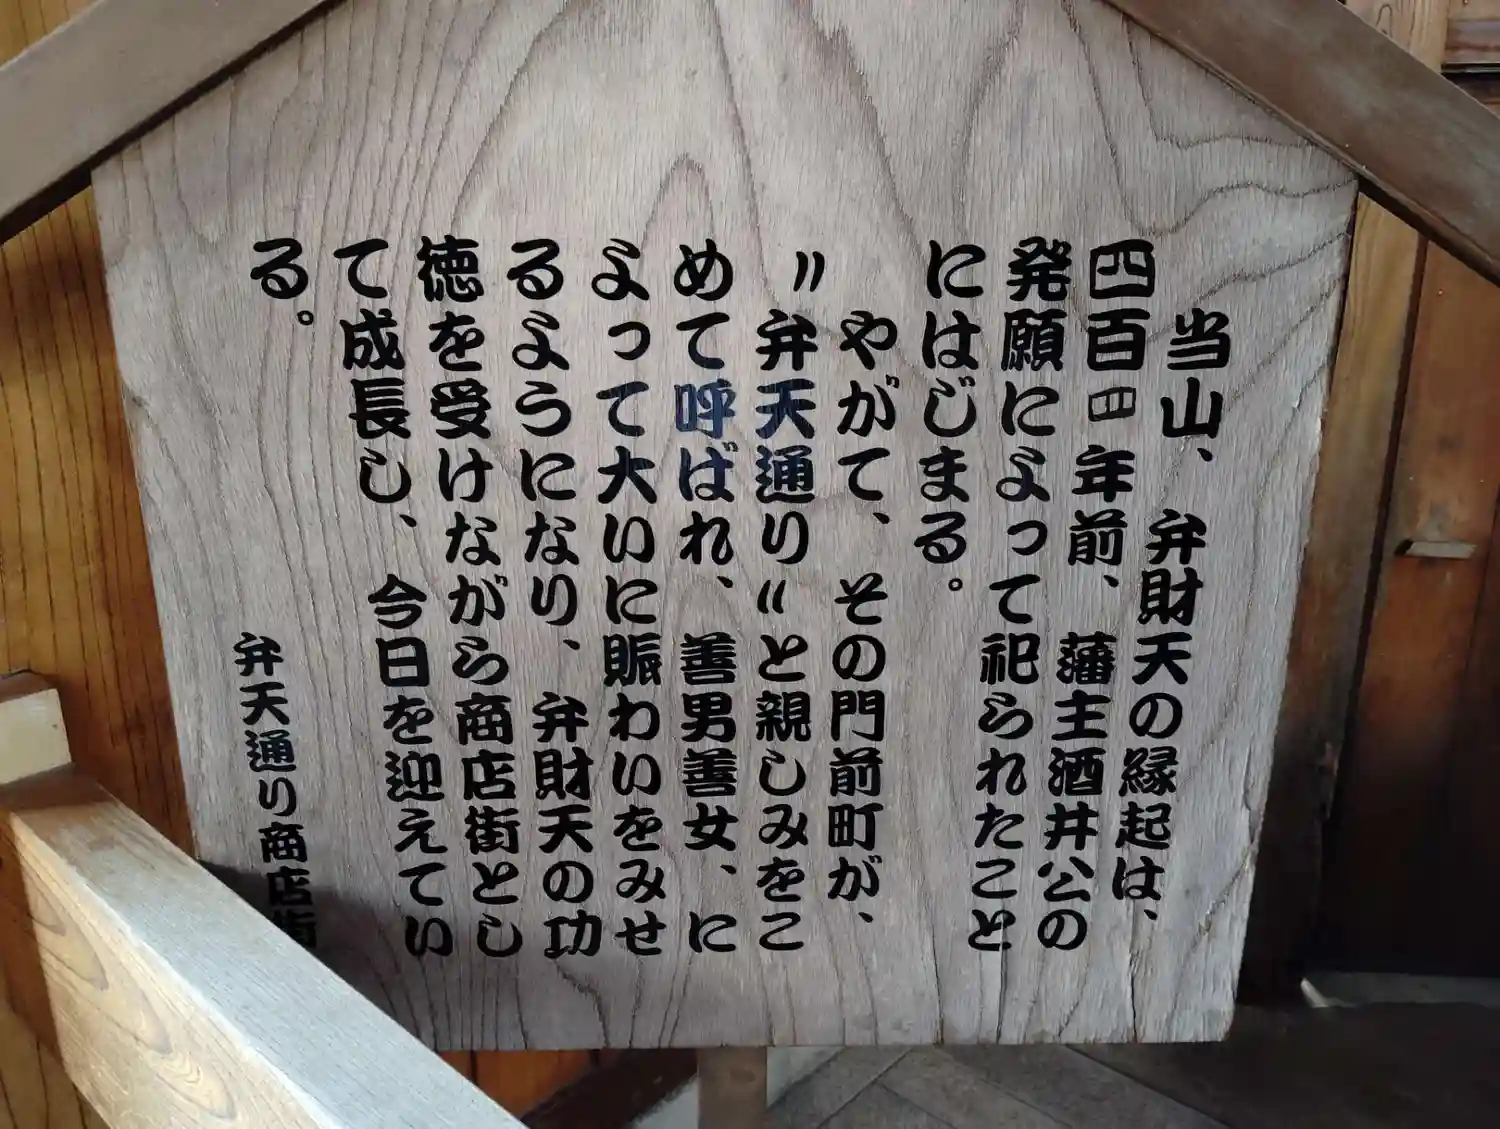 当山、弁財天の縁起は、
四百四年前、藩主酒井公の
発願によって祀られたこと
にはじまる。
やがて、その門前町が、
〃弁天通り〃と親しみをこ
めて呼ばれ、善男善女、に
よって大いに賑わいをみせ
るようになり、弁財天の功
徳を受けながら商店街とし
て成長し、今日を迎えてい
る。
弁天通り商店街